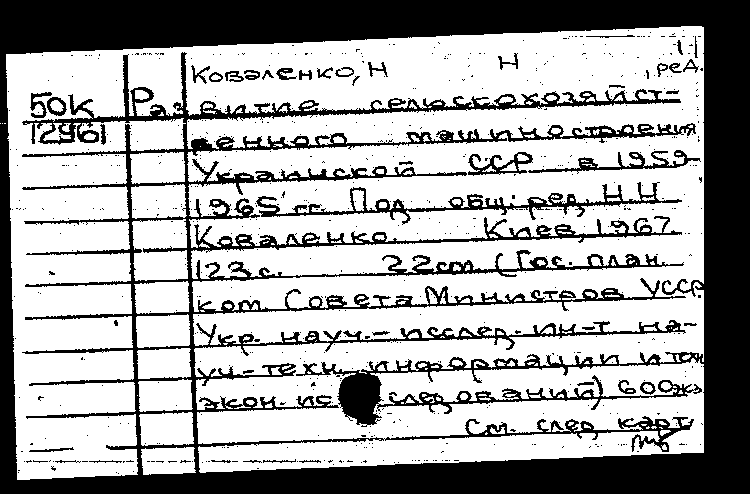 1
Коваленко, Н Н , ред.
50К Развитие сельскохозяйст-
12961 венного машиностроения
Украинской ССР в 1959-
1965 гг. Под общ. ред. Н.Н
Коваленко. Киев, 1967.
123 с. 22 cm. (Гос. план.
ком. Совета Министров УССР
Укр. науч.-исслед. ин-т на-
уч-техн. информации и техн
экон. исследований) 600 экз
См. след карт.